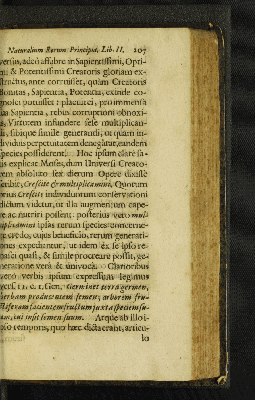 Naturalium Rerum Principia, Lib. II. 107
versus, adeò affabre in Sapientissimi, Opti-
mi & Potentissimi Creatoris gloriam ex-
structus, ante corruisset, quàm Creatoris
Bonitas, Sapientia, Potentia, exinde co-
gnosci potuisset: placuit ei, pro immensa
sua Sapientia, rebus corruptioni obnoxi-
is, Virtutem infundere sese multiplican-
di, sibique simile generandi, ut quam in-
dividuis perpetuitatem denegârat, eandem
species possiderent. Hoc ipsum clarè sa-
tis explicat Moses, dum Universi Creato-
rem absoluto sex dierum Opere dixisse
scribit, Crescite & multiplicamini, Quorum
prius Crescite individuorum conservationi
dictum videtur, ut illa augmentum cape-
re ac nutriri possent: posterius verò mul-
tiplicamini ipsas rerum species concerne-
re credo, cujus beneficio, rerum generati-
ones expediantur, ut idem ex se ipso re-
nasci quasi, & simile procreare possit, ge-
neratione verâ & univocâ. Clarioribus
verò verbis ipsum expressum legimus
versu 11. c. 1. Gen. Germinet terra germen,
herbam producentem semen; arborem fru-
ctiferam facientem fructum juxta speciem su-
am, cui insit semen suum. Atque ab illo i-
pso tempore, quo hæc dicta erant, articu-
lo